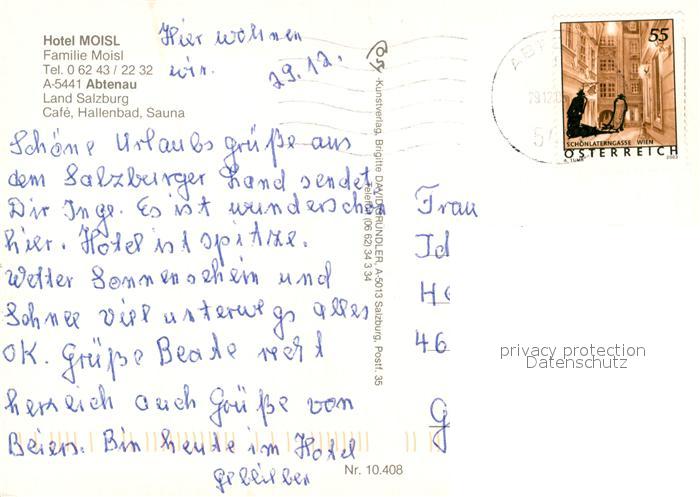 Hotel MOISL
Familie Moisl
Tel. 0 62 43 / 22 32
A-5441 Abtenau
Land Salzburg
Café, Hallenbad, Sauna
Hier wohnen
wir. 29.12.
Schöne Urlaubsgrüße aus
dem Salzburger Land sendet
Dir Inge. Es ist wunderschön
hier. Hotel ist spitze.
Wetter Sonnenschein und
Schnee viel unterwegs alles
OK. Grüße Beate recht
herzlich auch Grüße von
Beiers. Bin heute im Hotel
geblieben
Kunstverlag, Brigitte DAVID-GRÜNDLER, A-5013 Salzburg, Postf. 35
Telefon (06 62) 34 3 34
Nr. 10.408
55
SCHÖNLATERNGASSE WIEN
ÖSTERREICH
2003
Frau
Id
H
46
G
privacy protection
Datenschutz